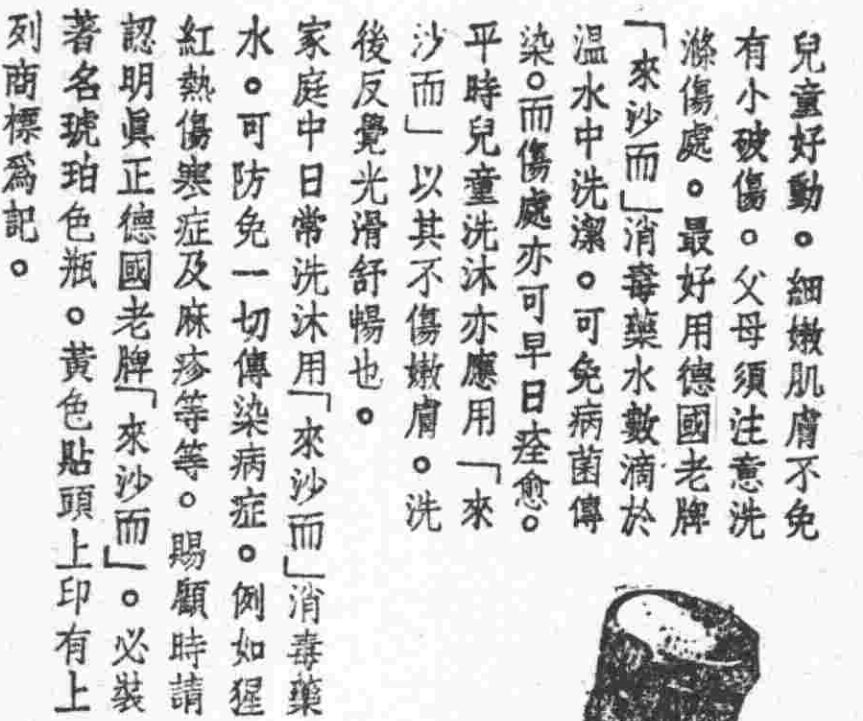 兒童好動。細嫩肌膚不免
有小破傷。父母須注意洗
滌傷處。最好用德國老牌
「來沙而」消毒藥水數滴於
温水中洗潔。可免病菌傳
染。而傷處亦可早日痊愈。
平時兒童洗沐亦應用「來
沙而」以其不傷嫩膚。洗
後反覺光滑舒暢也。
家庭中日常洗沐用「來沙而」消毒藥
水。可防免一切傳染病症。例如猩
紅熱傷寒症及麻疹等等。賜顧時請
認明眞正德國老牌「來沙而」。必裝
著名琥珀色瓶。黃色貼頭上印有上
列商標爲記。